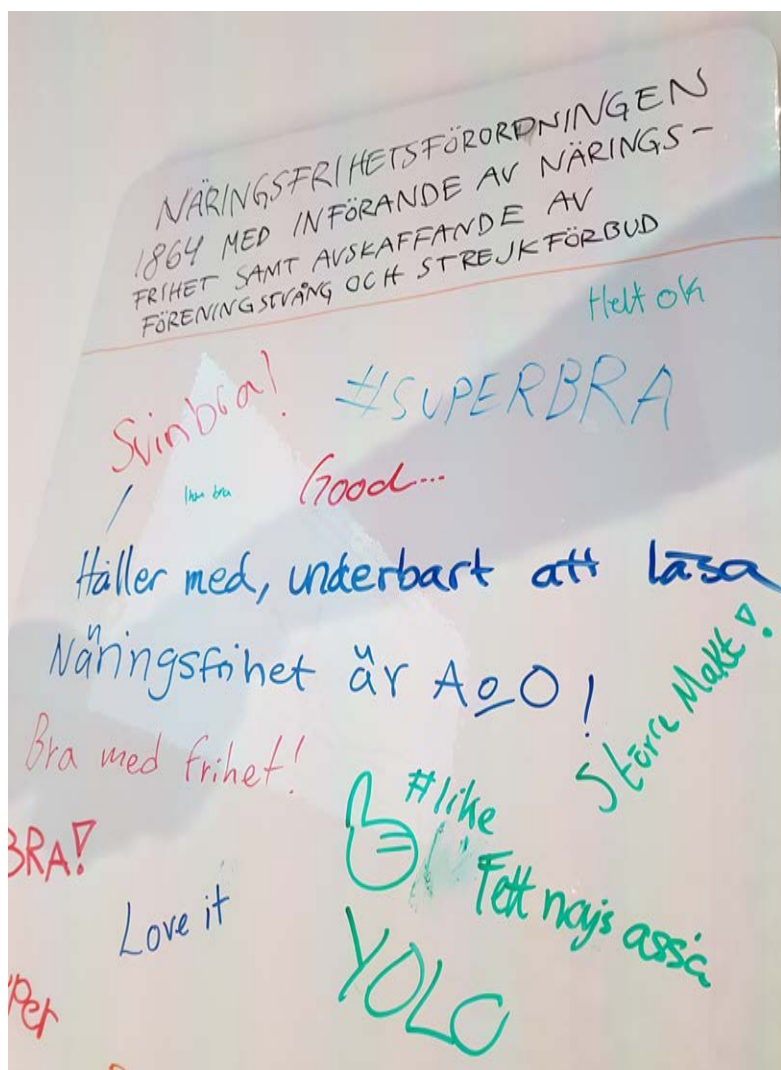 NÄRINGSFRIHETSFÖRORDNINGEN
1864 MED INFÖRANDE AV NÄRINGS-
FRIHET SAMT AVSKAFFANDE AV
FÖRENINGSTVÅNG OCH STREJKFÖRBUD
Helt ok
Svinbra!
#SUPERBRA
bra
Good...
Håller med, underbart att läsa
Näringsfrihet är AoO!
Större Makt!
Bra med frihet!
#like
BRA!
Fett najs asså
Love it
YOLO